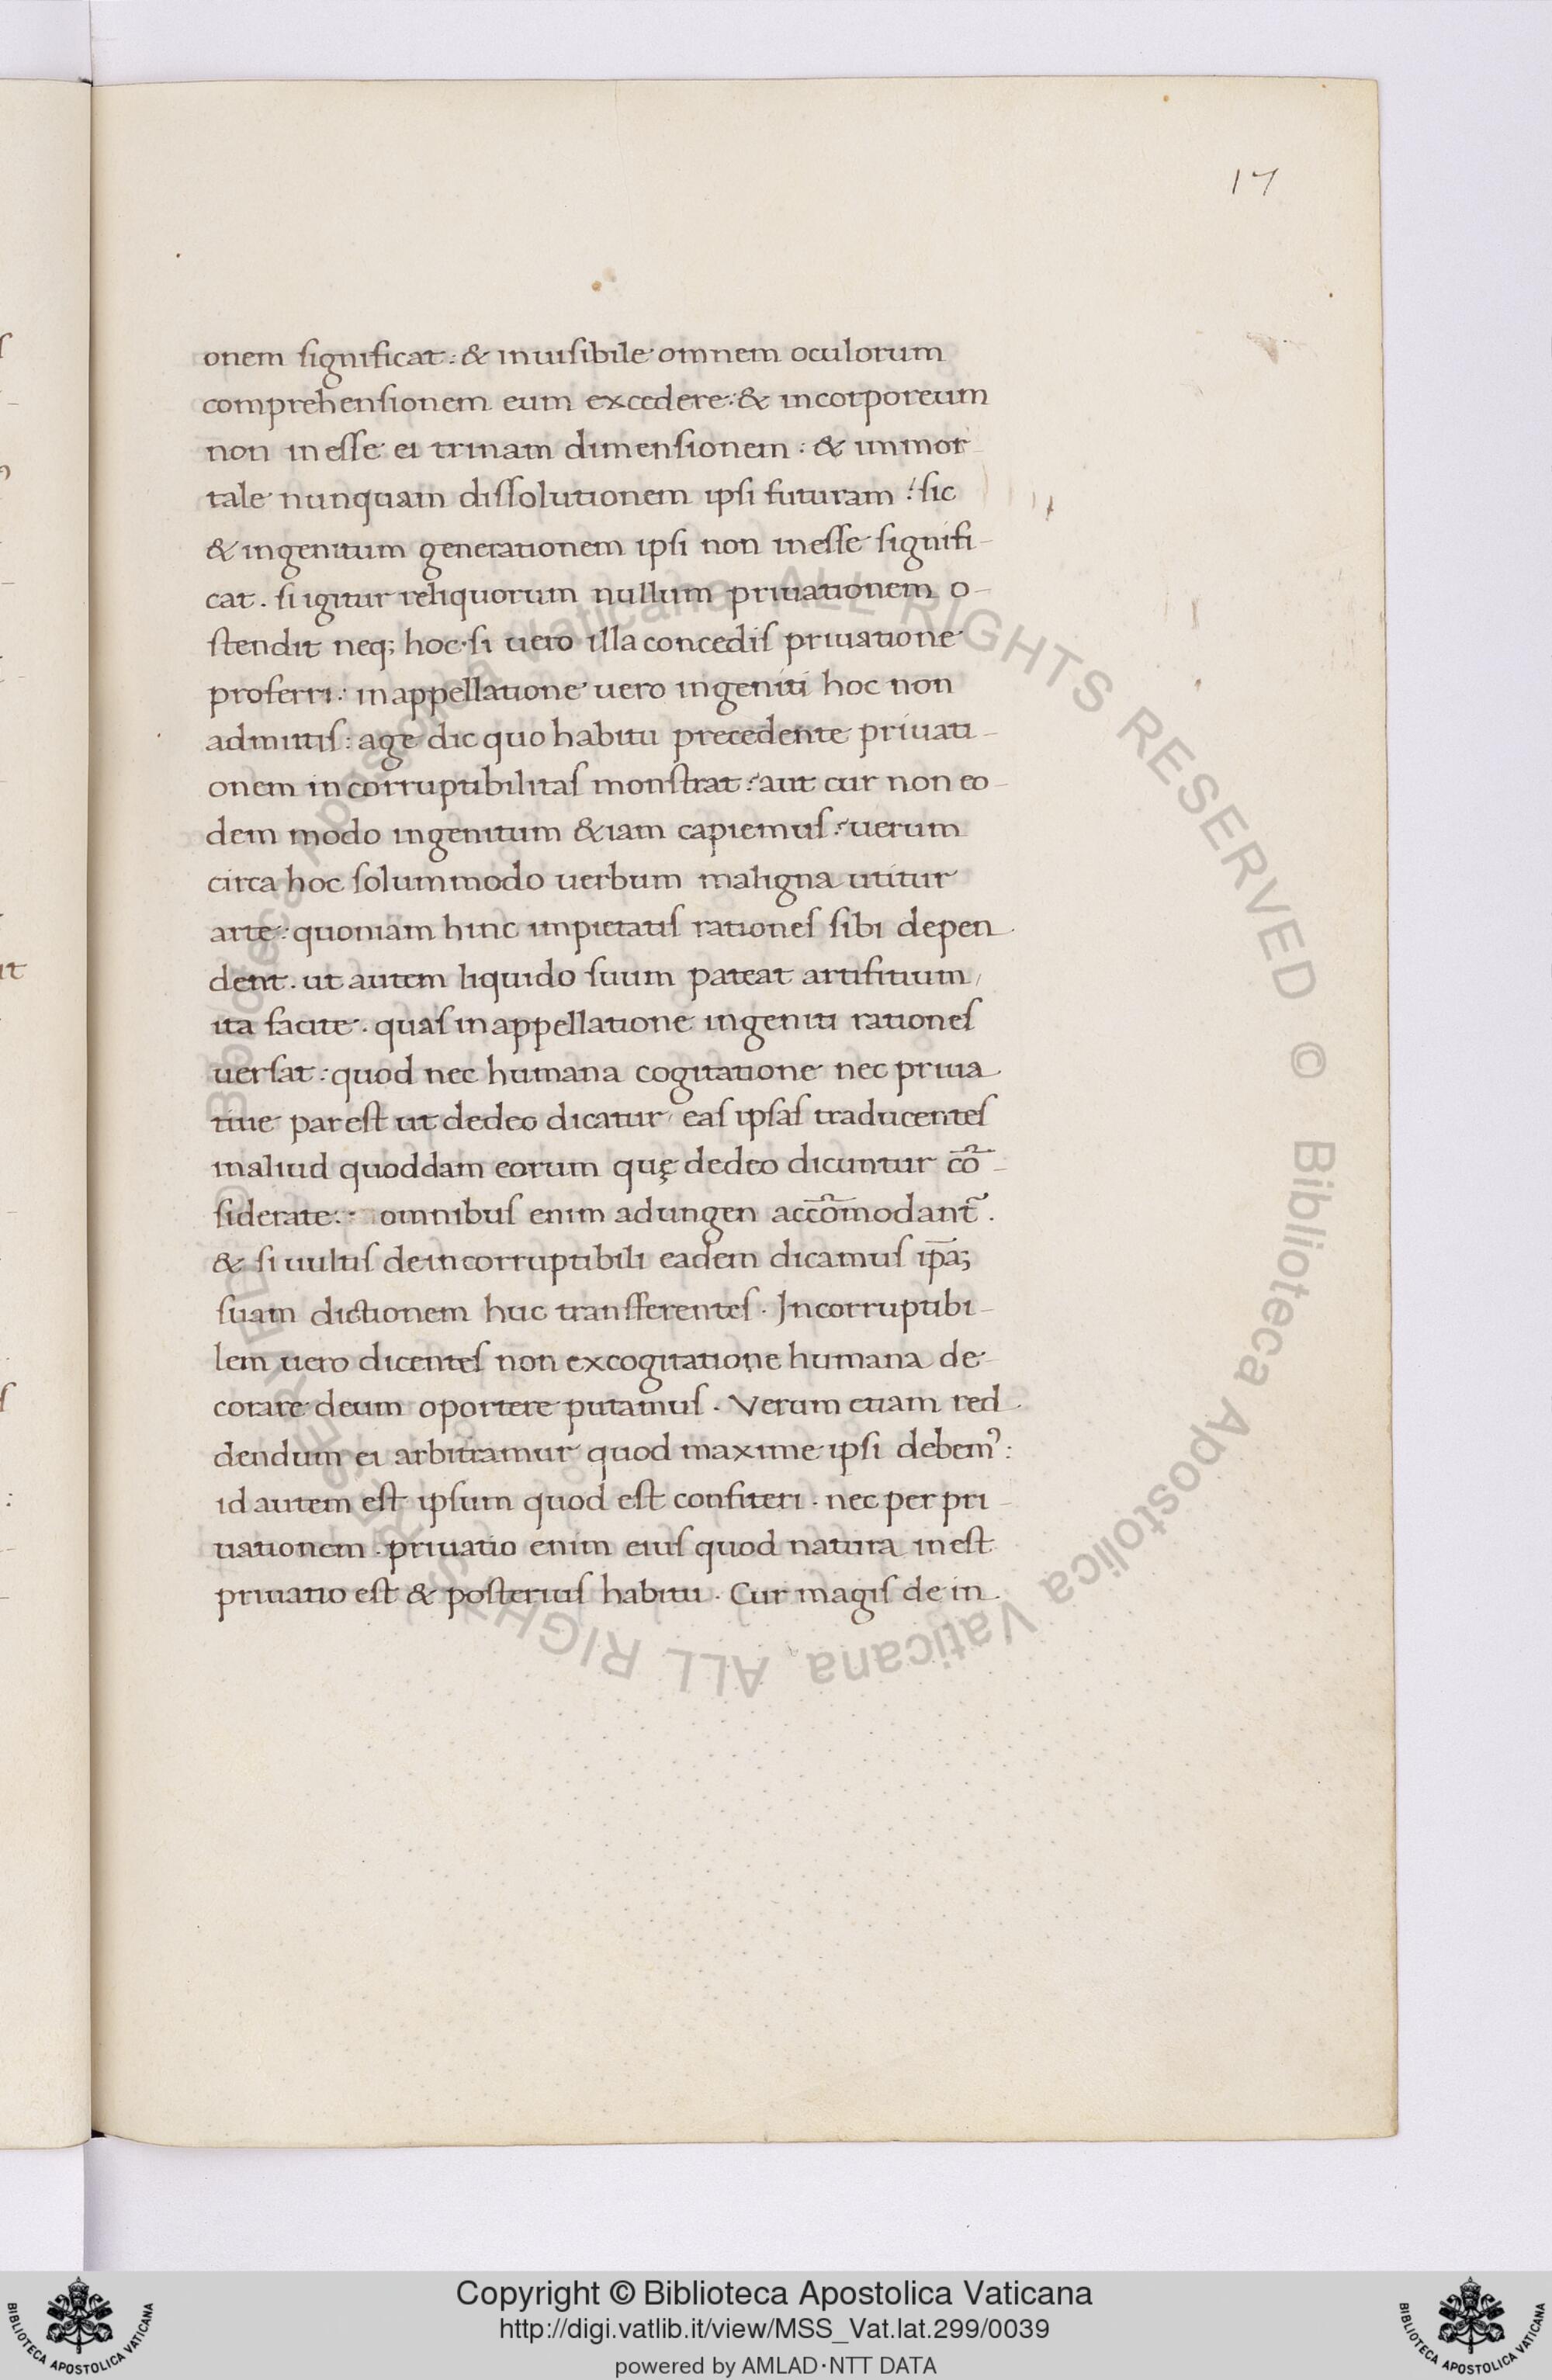 17
onem significat: & inuisibile omnem oculorum
comprehensionem eum excedere: & incorporeum
non inesse ei trinam dimensionem: & inmor
tale nunquam dissolutionem ipsi futuram: sic
& ingenitum generationem ipsi non inesse signifi-
cat. si igitur reliquorum nullum priuationem o-
stendit neq; hoc. si uero illa concedis priuatione
proferri: in appellatione uero ingeniti hoc non
admittis: age dic quo habitu precedente priuati-
onem incorruptibilitas monstrat: aut cur non eo-
dem modo ingenitum &iam capiemus: uerum
circa hoc solummodo uerbum maligna utitur
arte: quoniam hinc impietatis rationes sibi depen-
dent. ut autem liquido suum pateat artifitium/
ita facite. quas in appellatione ingeniti rationes
uersat: quod nec humana cogitatione nec priua-
tiue par est ut de deo dicatur/ eas ipsas traducentes
in aliud quoddam eorum quę de deo dicuntur cō-
siderate: omnibus enim ad ungen accōmodant᷑.
& si uultis de incorruptibili eadem dicamus ip̄a;
suam dictionem huc transferentes. Incorruptibi-
lem uero dicentes non excogitatione humana de-
corare deum oportere putamus. Verum etiam red-
dendum ei arbitramur quod maxime ipsi debemꝰ:
id autem est ipsum quod est confiteri. nec per pri-
uationem. priuatio enim eius quod natura inest
priuatio est & posterius habitu. Cur magis de in-
Copyright © Biblioteca Apostolica Vaticana
http://digi.vatlib.it/view/MSS_Vat.lat.299/0039
powered by AMLAD·NTT DATA
BIBLIOTECA APOSTOLICA VATICANA
BIBLIOTECA APOSTOLICA VATICANA
© Biblioteca Apostolica Vaticana ALL RIGHTS RESERVED
© Biblioteca Apostolica Vaticana ALL RIGHTS RESERVED